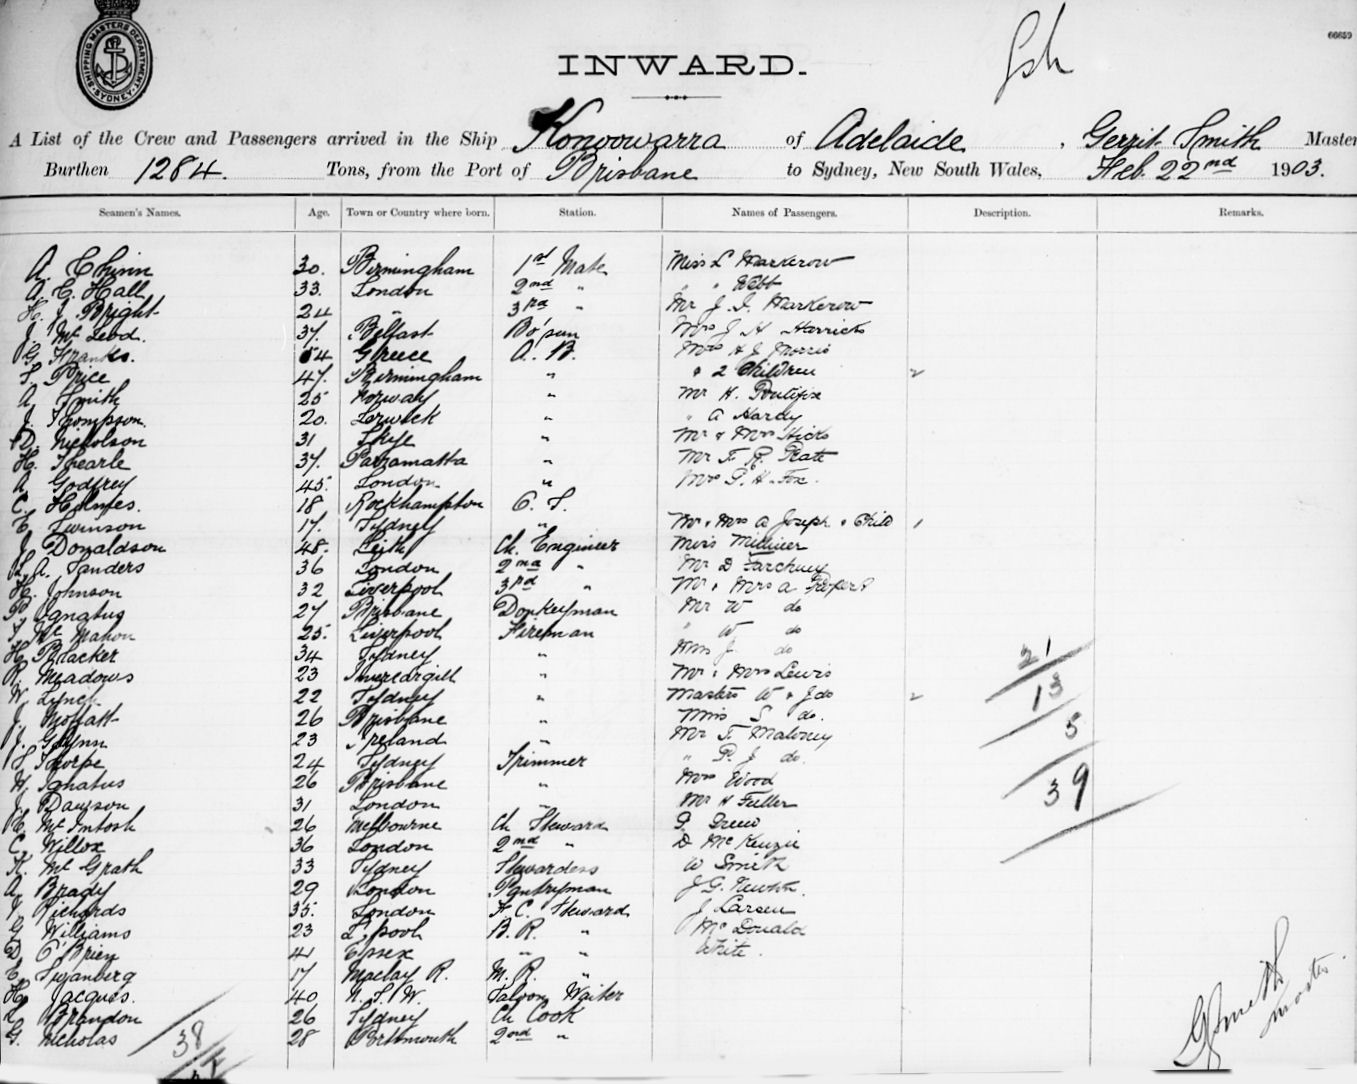 SHIPPING MASTERS DEPARTMENT SYDNEY
66659
INWARD.
A List of the Crew and Passengers arrived in the Ship Konoowarra of Adelaide, Gerrit Smith Master
Burthen 1284. Tons, from the Port of Brisbane to Sydney, New South Wales, Feb. 22nd 1903.
Seamen's Names. Age. Town or Country where born. Station. Names of Passengers. Description. Remarks.
A. Chinn 30. Birmingham 1st Mate Miss L Markerow
A. C. Hall 33. London 2nd " " " Webb
H. J. Bright 24 " 3rd " Mr J. I. Markerow
J. Mc Leod. 37. Belfast Bo'sun Mrs J H Harricks
G. Franks. 54 Greece A. B. Mrs H J Morris
S. Price 47. Birmingham " & 2 Children 2
A. Smith 25 Norway " Mr H. Pontifix
J. Thompson. 20. Lerwick " " A Hardy
D. Nicholson 31 Skye " Mr & Mrs Hicks
H. Shearle 37. Parramatta " Mr F. R. Pratt
A. Godfrey 45. London " Mrs P. H. Fox.
C. Holmes. 18 Rockhampton O. S.
E. Swinson 17. Sydney " Mr & Mrs A Joseph & Child 1
J. Donaldson 48. Leith Ch. Engineer Miss Milliner
A. Sanders 36 London 2nd " Mr D
H. Johnson 32 Liverpool 3rd " Mr & Mrs A
P. Ignatus 27 Brisbane Donkeyman Mr W do
T. Mc Mahon 25. Liverpool Fireman " W do
H. Placker 34 Sydney " J. do
Meadows 23 Invercargill " Mr & Mrs Lewis
W. Lynch 22 Sydney " Masters W & J do 2
J. Moffatt 26 Brisbane " Miss S do.
J. Glynn 23 Ireland " Mr T. Maloney
S. Thorpe 24 Sydney Trimmer " P. J. do.
H. Ignatus 26 Brisbane " Mrs Wood
J. Dawson 31 London " Mr H Fuller
Mc Intosh 26 Melbourne Ch Steward G. Drew
C. Willox 36 London 2nd " D McKenzie
K. Mc Grath 33 Sydney Stewardess W Smith
A. Brady 29 London Pantryman J G. Newton.
Richards 35. London F. C. Steward J Larsen
G. Williams 23 L. pool B. R. " McDonald
D. O'Brien 41 Essex " " White.
E. Swanberg 17 Maclay R. M. R. "
H. Jacques. 40 N. S. W. Saloon Waiter
Brandon 26 Sydney Ch Cook
G. Nicholas 28 Portsmouth 2nd "
21
13
5
39
38
G Smith
Master.